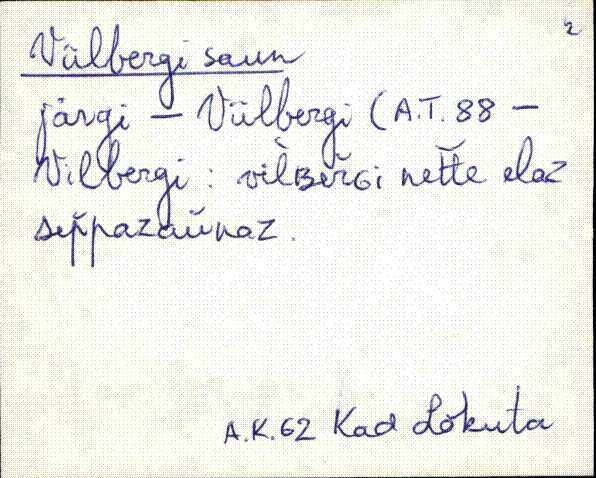 2
Vülbergi saun
järgi – Vülbergi (A.T. 88 –
Vilbergi: vìlʙeřɢi neťťe elaz
seppazaŭnaz.
A.K. 62 Kad Lõkuta